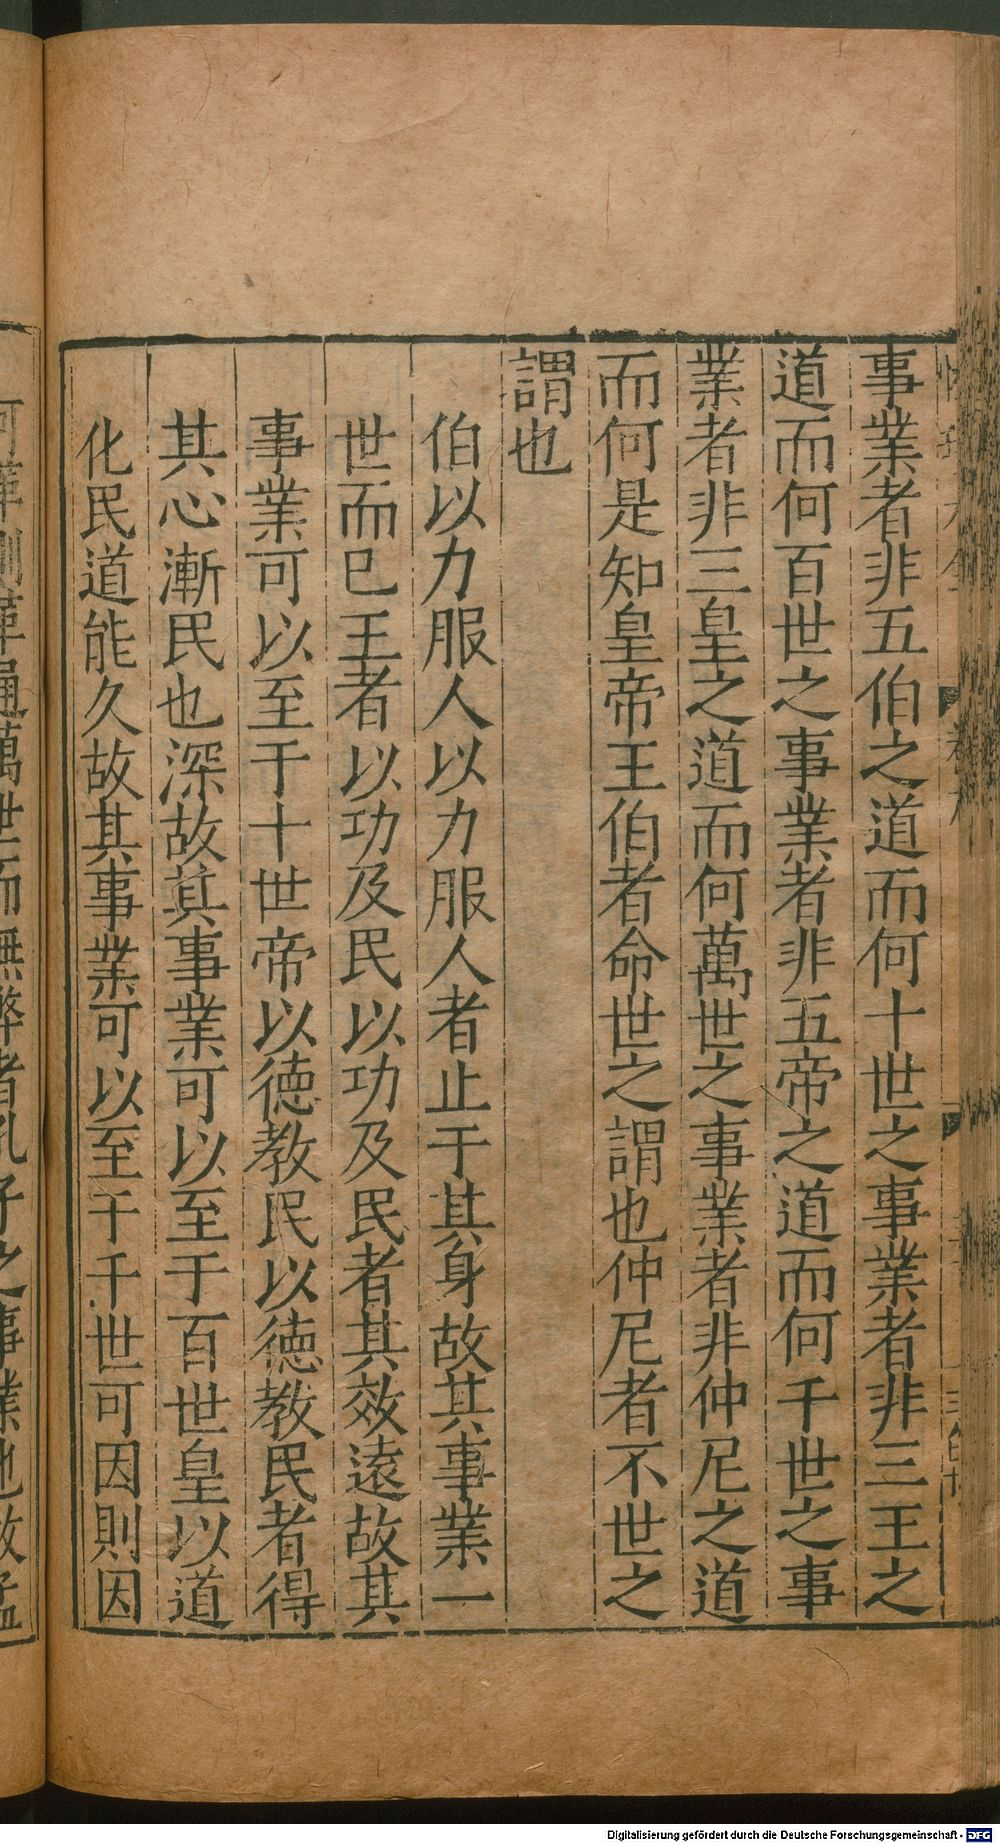 事業者非五伯之道而何十世之事業者非三王之
道而何百世之事業者非五帝之道而何千世之事
業者非三皇之道而何萬世之事業者非仲尼之道
而何是知皇帝王伯者命世之謂也仲尼者不世之
謂也
伯以力服人以力服人者止于其身故其事業一
世而已王者以功及民以功及民者其效遠故其
事業可以至于十世帝以德教民以德教民者得
其心漸民也深故其事業可以至于百世皇以道
化民道能久故其事業可以至于千世可因則因
可革則革通萬世而無弊者孔子之事業也故孟
Digitalisierung gefördert durch die Deutsche Forschungsgemeinschaft - DFG